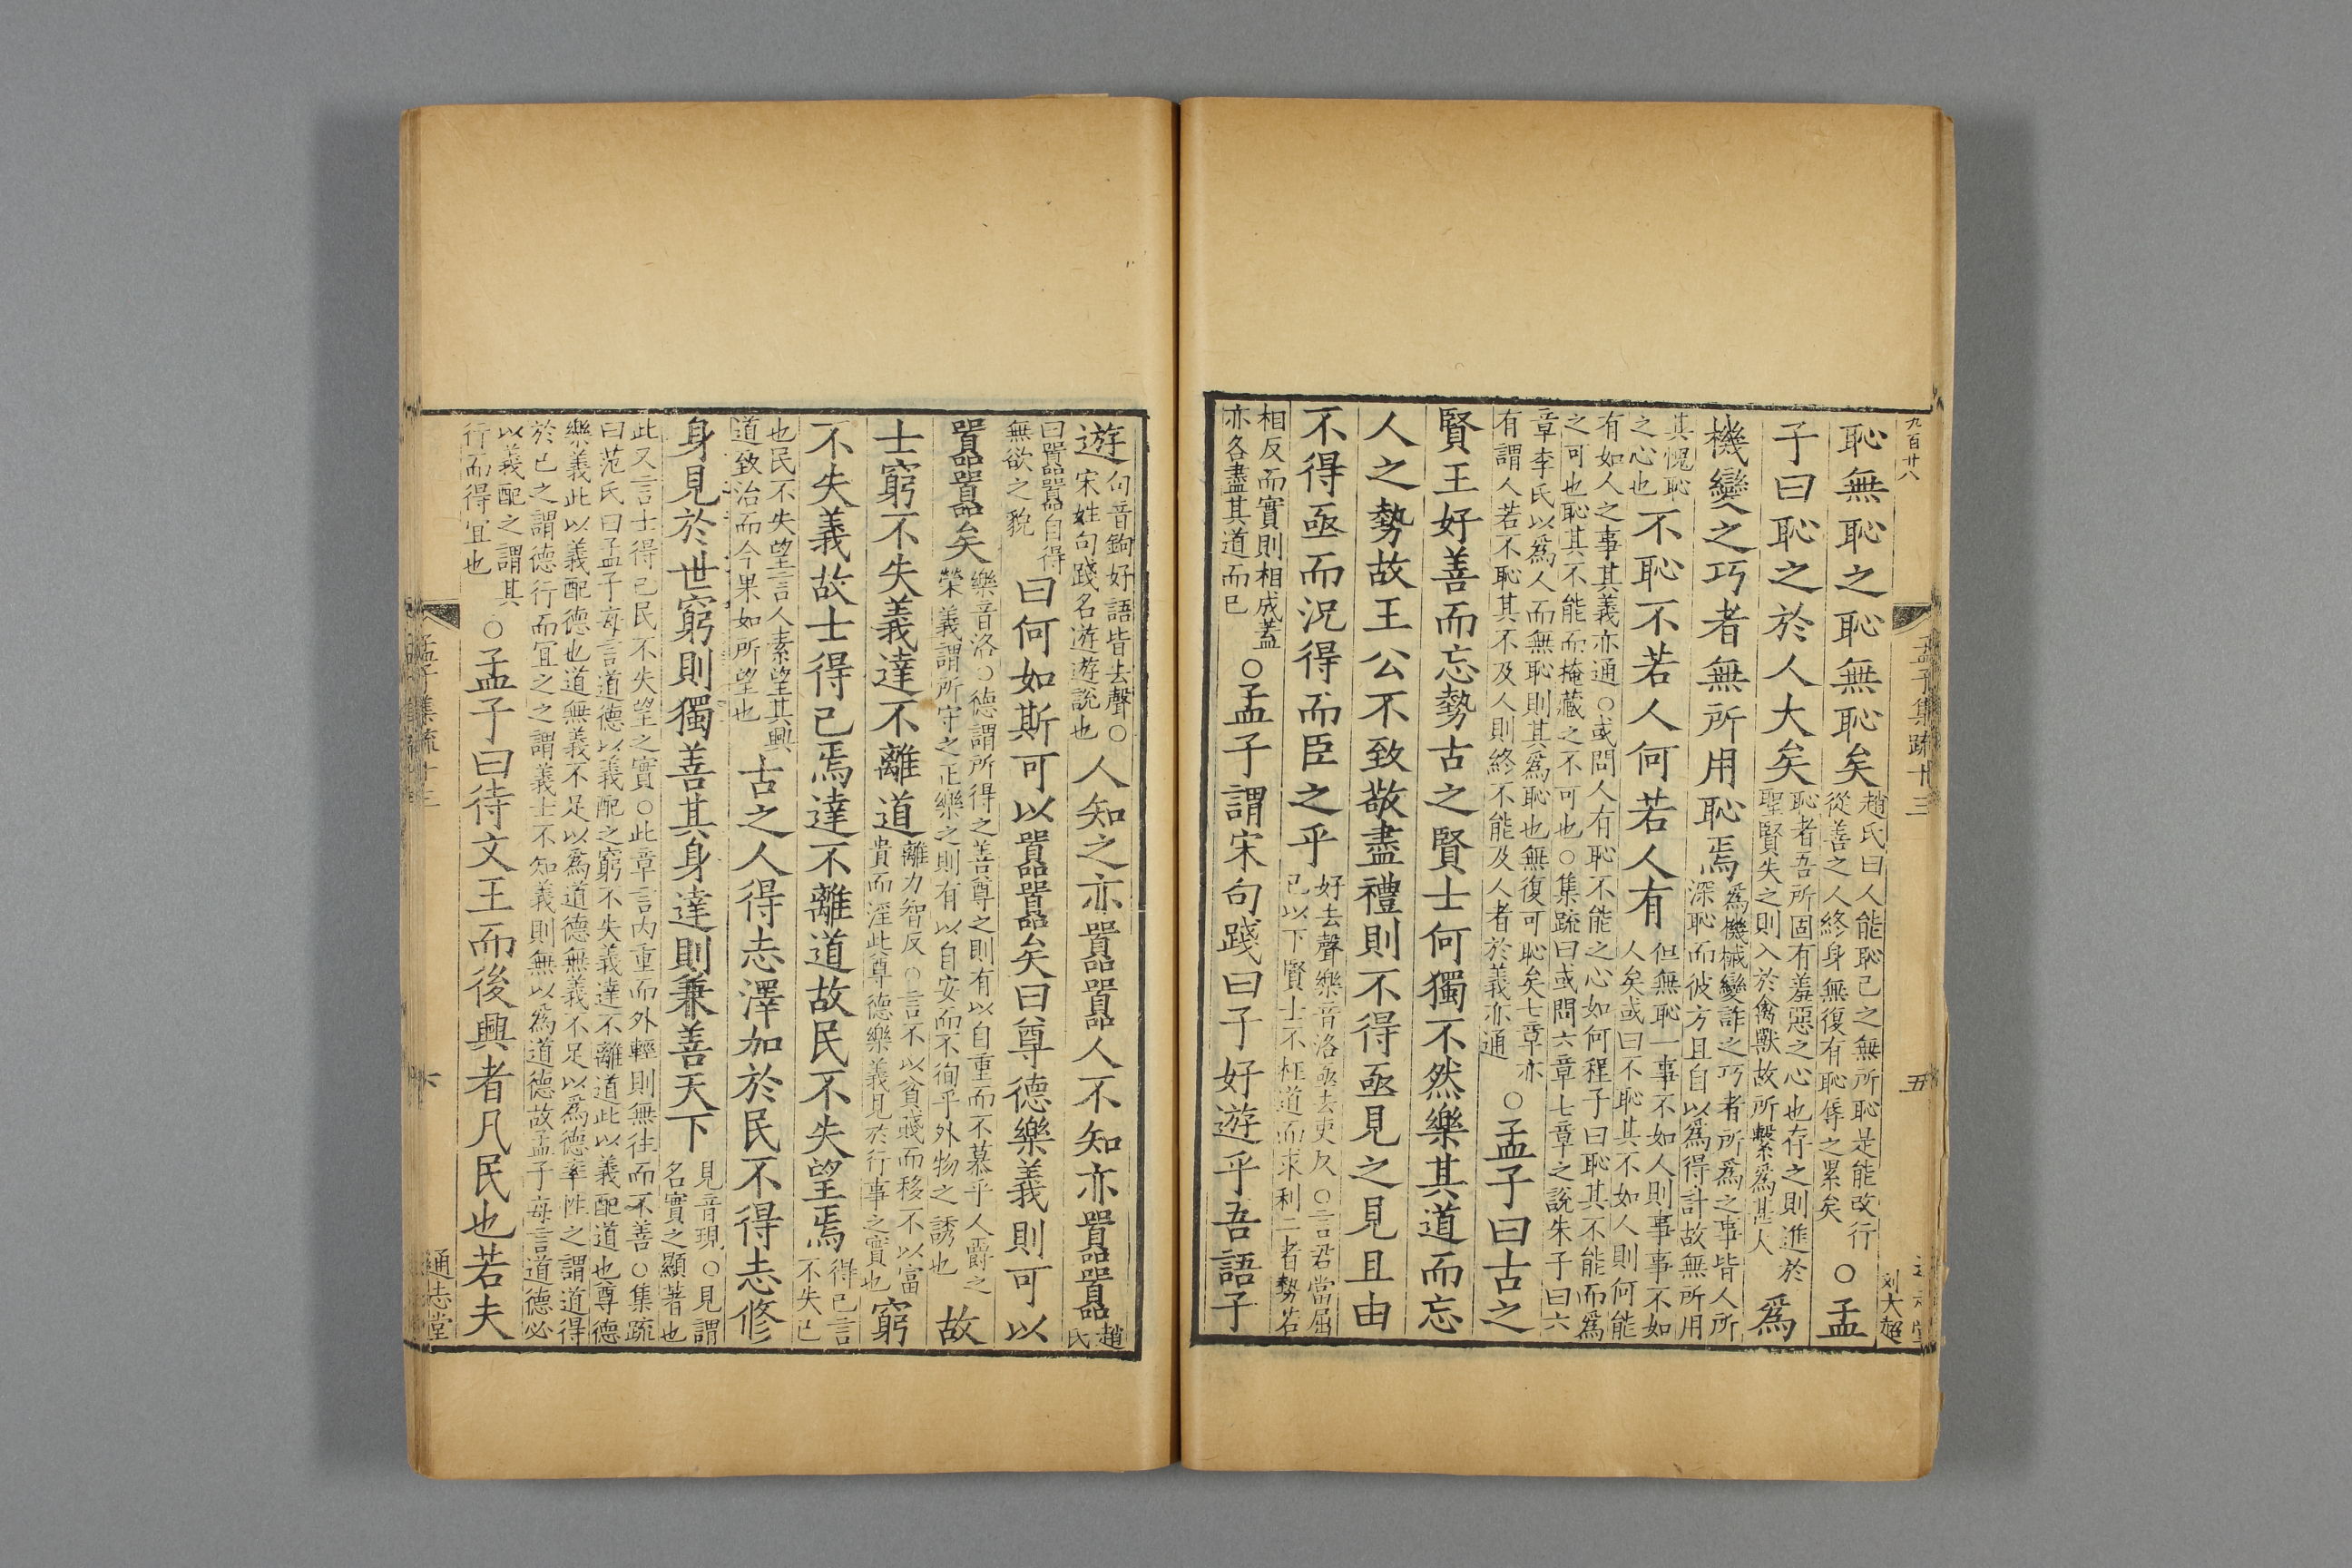 九百廾八
孟子集疏十三
五
刘大超
恥無恥之恥無恥矣趙氏曰人能恥己之無所恥是能改行從善之人終身無復有恥辱之累矣○孟
子曰恥之於人大矣恥者吾所固有羞惡之心也存之則進於聖賢失之則入於禽獸故所繫爲甚大爲
機變之巧者無所用恥焉爲機械變詐之巧者所爲之事皆人所深恥而彼方且自以爲得計故無所用
其愧恥之心也不恥不若人何若人有但無恥一事不如人則事事不如人矣或曰不恥其不如人則何能
有如人之事其義亦通○或問人有恥不能之心如何程子曰恥其不能而爲之可也恥其不能而掩藏之不可也○集疏曰或問六章七章之說朱子曰六
章李氏以爲人而無恥則其爲恥也無復可恥矣七章亦有謂人若不恥其不及人則終不能及人者於義亦通○孟子曰古之
賢王好善而忘勢古之賢士何獨不然樂其道而忘
人之勢故王公不致敬盡禮則不得亟見之見且由
不得亟而況得而臣之乎好去聲樂音洛亟去吏反○言君當屈己以下賢士不枉道而求利二者勢若
相反而實則相成蓋亦各盡其道而已○孟子謂宋句踐曰子好遊乎吾語子
遊句音鉤好語皆去聲○宋姓句踐名遊遊說也人知之亦囂囂人不知亦囂囂趙氏
曰囂囂自得無欲之貌曰何如斯可以囂囂矣曰尊德樂義則可以
囂囂矣樂音洛○德謂所得之善尊之則有以自重而不慕乎人爵之榮義謂所守之正樂之則有以自安而不徇乎外物之誘也故
士窮不失義達不離道離力智反○言不以貧賤而移不以富貴而淫此尊德樂義見於行事之實也窮
不失義故士得己焉達不離道故民不失望焉得己言不失己
也民不失望言人素望其興道致治而今果如所望也古之人得志澤加於民不得志修
身見於世窮則獨善其身達則兼善天下見音現○見謂名實之顯著也
此又言士得己民不失望之實○此章言內重而外輕則無往而不善○集疏曰范氏曰孟子每言道德以義配之窮不失義達不離道此以義配道也尊德
樂義此以義配德也道無義不足以爲道德無義不足以爲德率性之謂道得於己之謂德行而宜之之謂義士不知義則無以爲道德故孟子每言道德必
以義配之謂其行而得宜也○孟子曰待文王而後興者凡民也若夫
孟子集疏十三
六
通志堂